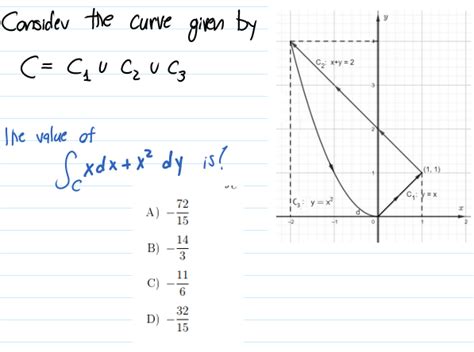 Consider the curve given by
C = C₁ ∪ C₂ ∪ C₃
The value of
∫_C xdx + x² dy is?
A) −72/15
B) −14/3
C) −11/6
D) −32/15
y
C₂: x+y = 2
3
2
(1, 1)
1
C₁: y = x
C₃: y = x²
x
-2
-1
0
1
2